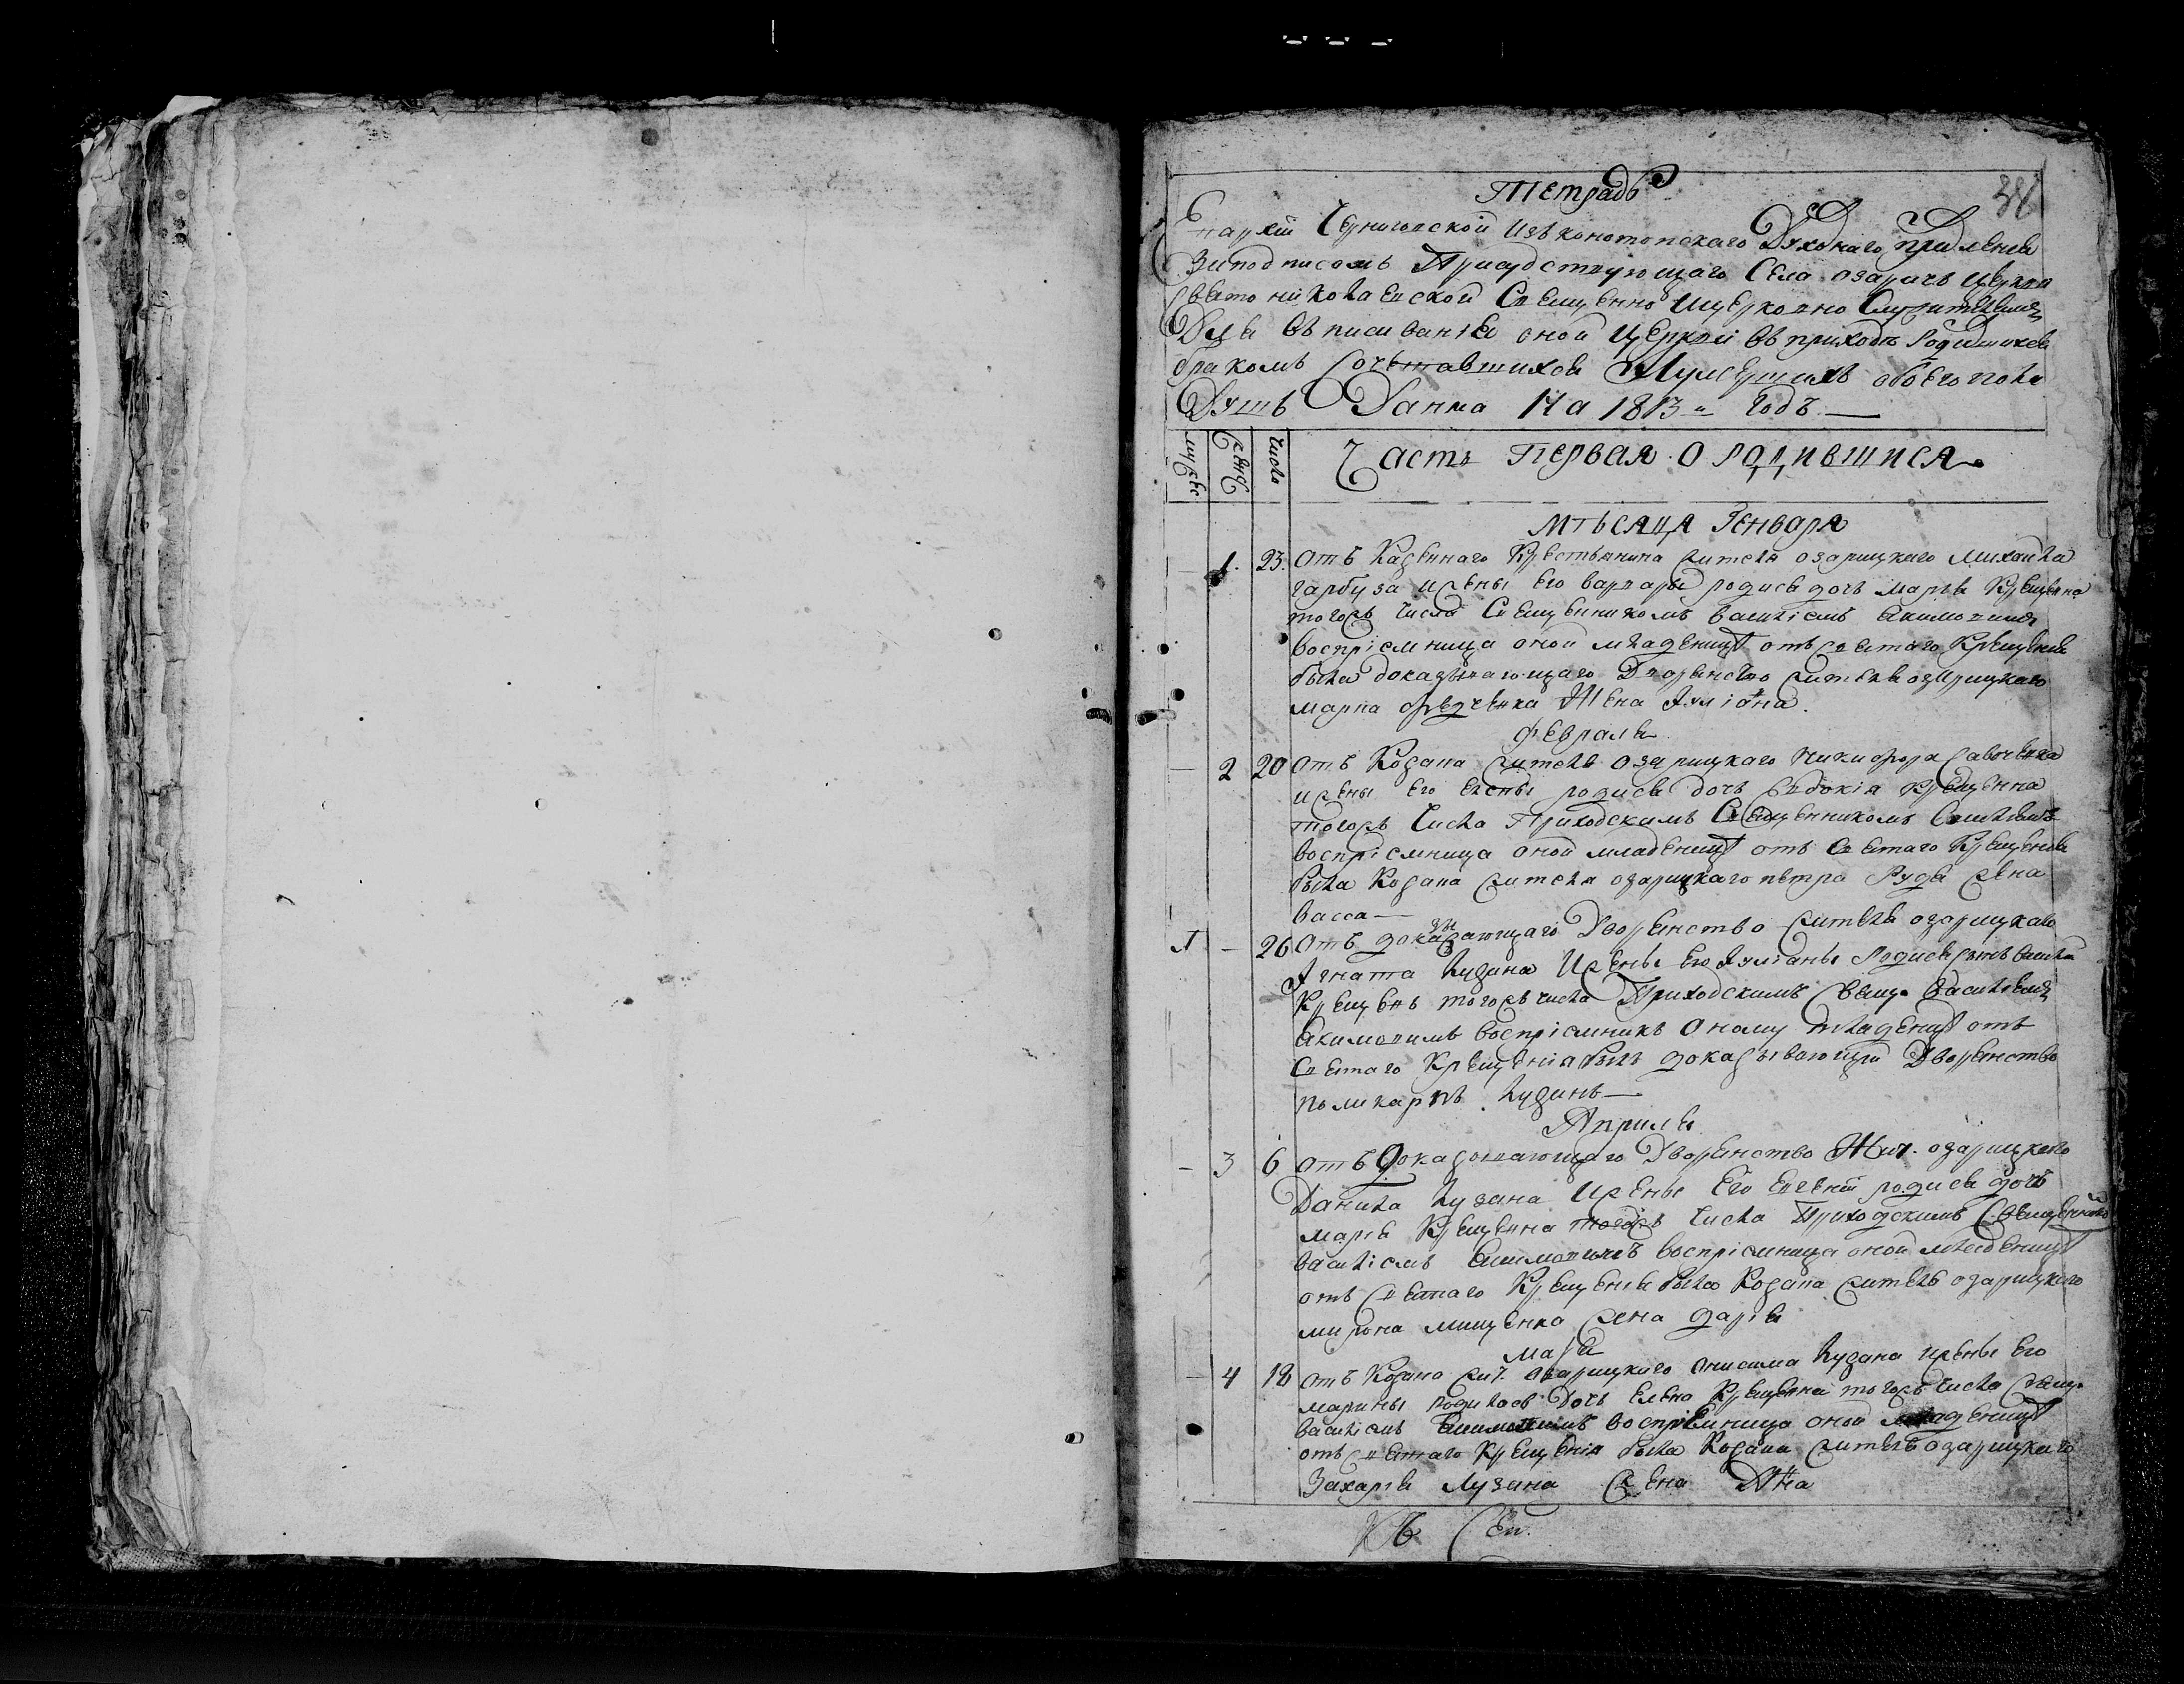 381
Тетрадь
Епархіи Черниговской Изъ конотопского Духовнаго правленія
Заподписомъ Присудствующаго Села озаричъ церкви
Свято николаевской Священно Ицерковно Служителямъ
Для вписиванія оной церкви въ приходѣ Родившихся
бракомъ сочетавшихся Иумершихъ обоего пола
Душъ Данна На 1813-й годъ
мужеск женск Числа Часть Первая о родившися
мѣсяца Генваря
1. 23. отъ Казенного Крестьянина жителя озарицкого михаила
гарбуза ижены Его варвары родися дочь марія Крещенна
тогожъ числа Священникомъ василіемъ Акимовимъ
воспріемница оной младеници отъ святаго Крещенія
была доказивающаго Дворенство жителя озарицкаго
марка Жена Иулiана.
февраля
2 20 отъ Козака жителя озарицкаго никифора Савченка
ижены Его родися дочь Евдокія Крещенна
тогожъ числа Приходскимъ Священникомъ Василіемъ
воспріемница оной младеници отъ Святаго Крещенія
была Козака жителя озарицкаго петра жена
васса
1 - 26 отъ доказивающаго Дворенство жителя озарицкаго
Игната Лузана Ижены Его Иулiаны Родися сынъ
Крещенъ тогожъ числа Приходскимъ Свящ. Василіемъ
Акимовимъ воспріемникъ оному младенцу отъ
Святаго Крещенія былъ доказывающій Дворенство
поликарпъ Лузанъ
Априля
- 3 6 отъ доказовающаго Дворенство Жит. озарицкого
Данила Лузана Ижены Его Евгеніи родися дочь
марія Крещенна тогожъ числа Приходскимъ Священникомъ
василіемъ Акимовимъ воспріемница оной младеници
отъ Святаго Крещенія была Козака жителя озарицкого
мирона мищенка жена дарія
маія
- 4 18 отъ Козака жит. озарицкого Онисима Лузана ижены Его
марины родилась Дочь Елена Крещенна тогожъ числа свящ.
василіемъ Акимовимъ воспріемница оной младеници
отъ Святаго Крещенія была Козака жителя озарицкаго
Захарія Лузана жена Анна
Къ Сей